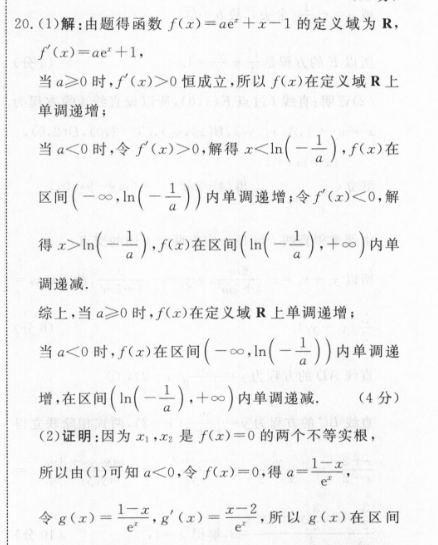 20. (1)解:由题得函数 f(x)=aeˣ+x−1 的定义域为 R,
f′(x)=aeˣ+1,
当 a≥0 时,f′(x)>0 恒成立,所以 f(x)在定义域 R 上
单调递增;
当 a<0 时,令 f′(x)>0,解得 x<ln(−1/a),f(x)在
区间(−∞,ln(−1/a))内单调递增;令 f′(x)<0,解
得 x>ln(−1/a),f(x)在区间(ln(−1/a),+∞)内单
调递减.
综上,当 a≥0 时,f(x)在定义域 R 上单调递增;
当 a<0 时,f(x)在区间(−∞,ln(−1/a))内单调递
增,在区间(ln(−1/a),+∞)内单调递减. (4 分)
(2)证明:因为 x₁,x₂ 是 f(x)=0 的两个不等实根,
所以由(1)可知 a<0,令 f(x)=0,得 a=(1−x)/eˣ,
令 g(x)=(1−x)/eˣ,g′(x)=(x−2)/eˣ,所以 g(x)在区间